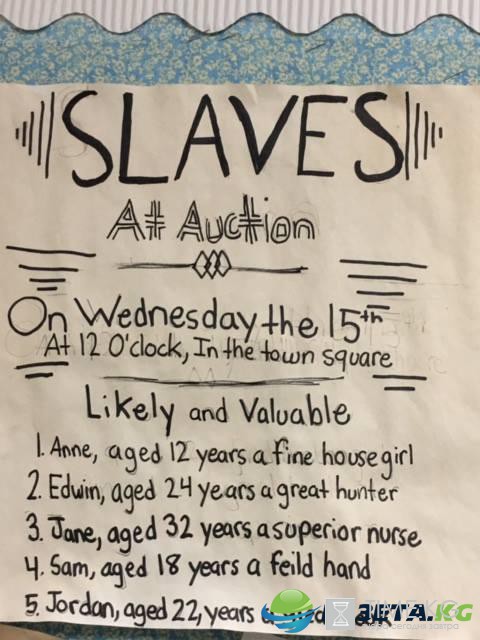 SLAVES
At Auction
On Wednesday the 15th
At 12 O'clock, In the town square
Likely and Valuable
1. Anne, aged 12 years a fine house girl
2. Edwin, aged 24 years a great hunter
3. Jane, aged 32 years a superior nurse
4. Sam, aged 18 years a feild hand
5. Jordan, aged 22, years
.KG